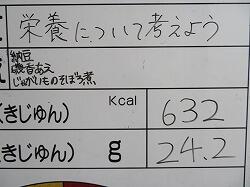 栄養について考えよう
納豆
磯香あえ
じゃがいものそぼろ煮
(きじゅん) Kcal 632
(きじゅん) g 24.2